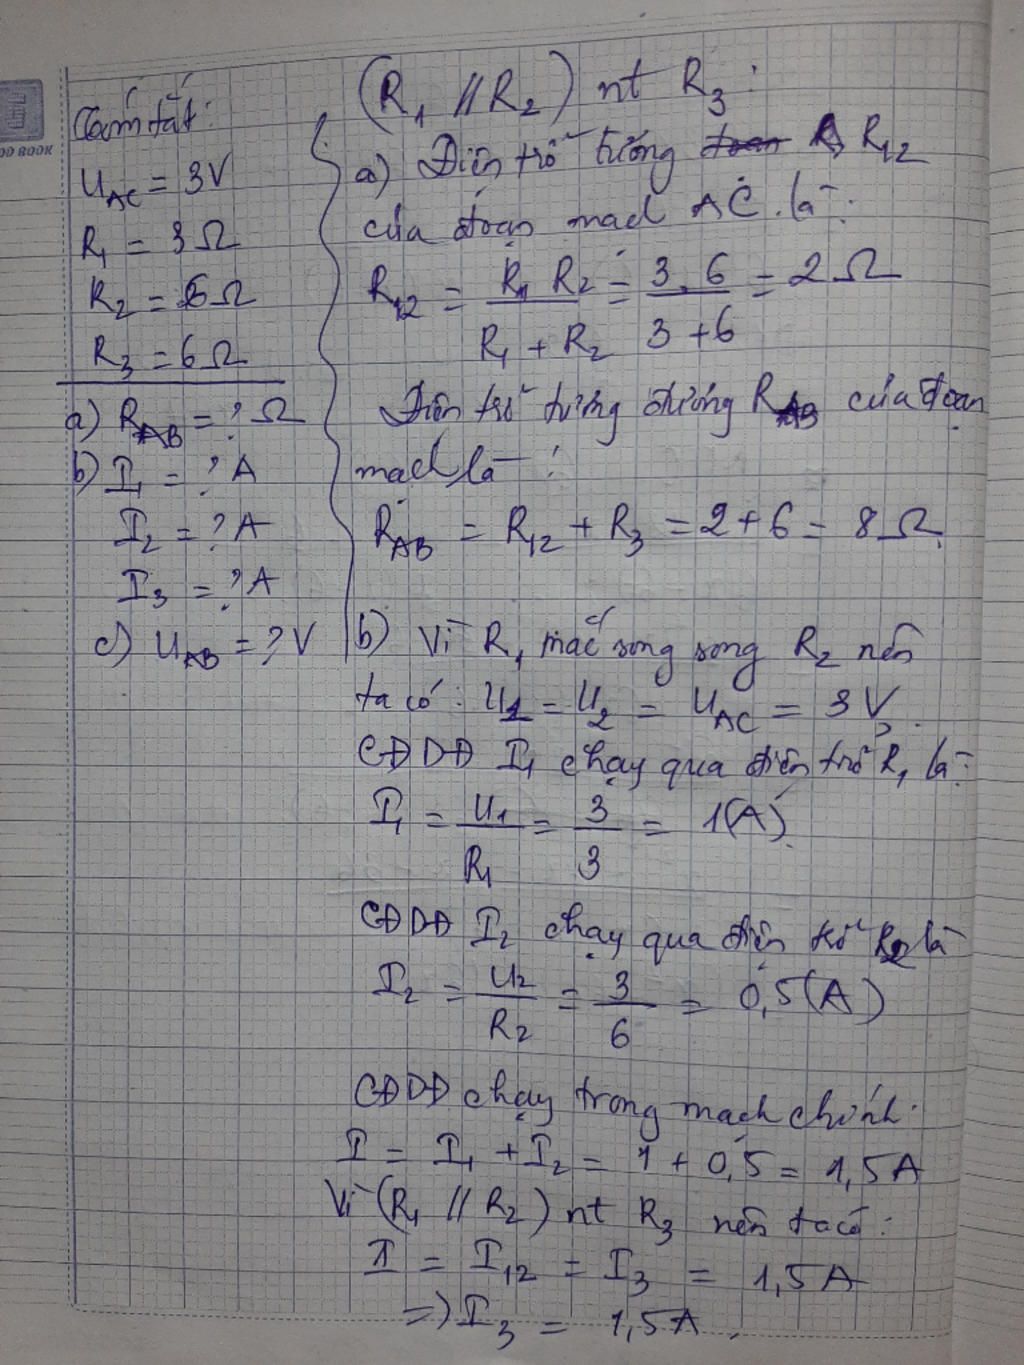 OO BOOK
Tóm tắt:
U_AC = 3V
R₁ = 3Ω
R₂ = 6Ω
R₃ = 6Ω
a) R_AB = ? Ω
b) I₁ = ? A
I₂ = ? A
I₃ = ? A
c) U_AB = ? V
(R₁ // R₂) nt R₃:
a) Điện trở tương R₁₂
của đoạn mạch AC là:
R₁₂ = R₁ R₂ / R₁ + R₂ = 3.6 / 3+6 = 2Ω
Điện trở tương đương R_AB của đoạn
mạch là:
R_AB = R₁₂ + R₃ = 2+6 = 8Ω.
b) Vì R₁ mắc song song R₂ nên
ta có: U₁ = U₂ = U_AC = 3V.
CĐDĐ I₁ chạy qua điện trở R₁ là:
I₁ = U₁ / R₁ = 3 / 3 = 1(A).
CĐDĐ I₂ chạy qua điện trở R₂ là
I₂ = U₂ / R₂ = 3 / 6 = 0,5(A)
CĐDĐ chạy trong mạch chính:
I = I₁ + I₂ = 1 + 0,5 = 1,5A
Vì (R₁ // R₂) nt R₃ nên ta có:
I = I₁₂ = I₃ = 1,5A
=> I₃ = 1,5A.